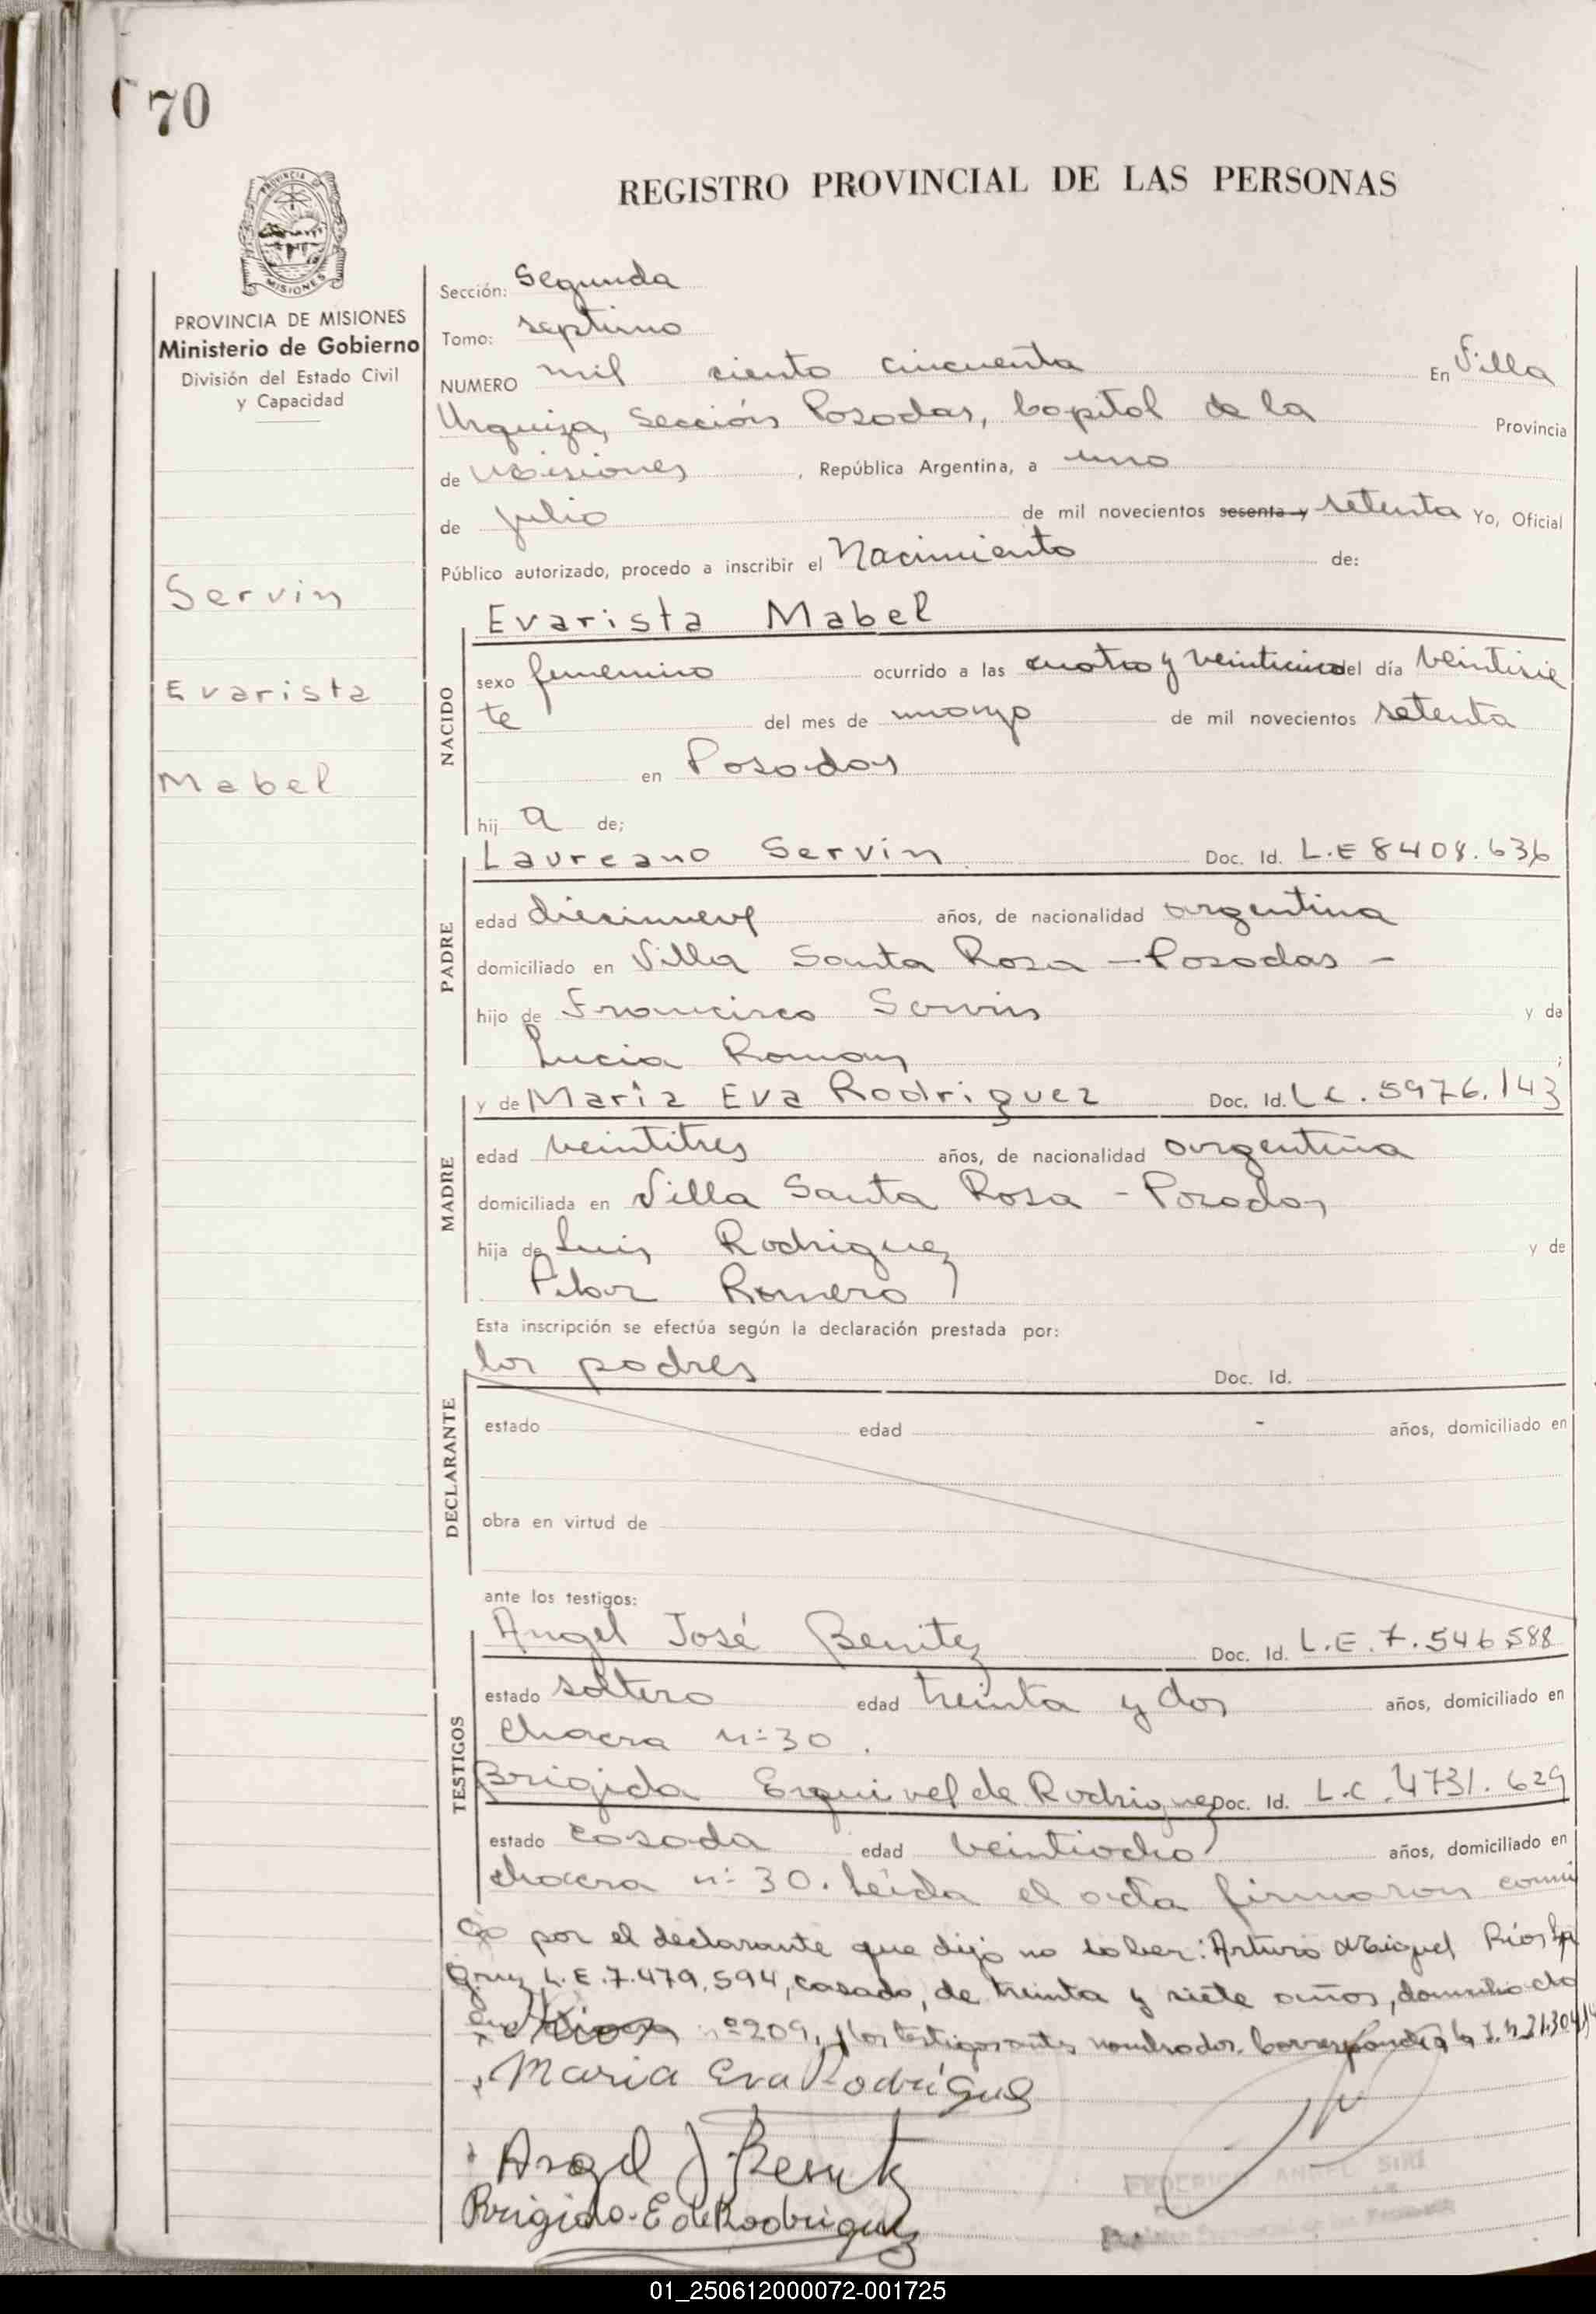 70
REGISTRO PROVINCIAL DE LAS PERSONAS
PROVINCIA
MISIONES
PROVINCIA DE MISIONES
Ministerio de Gobierno
División del Estado Civil
y Capacidad
Servin
Evarista
Mabel
Sección: Segunda
Tomo: septimo
NUMERO mil ciento cincuenta En Villa
Urquiza, Sección Posadas, Capital de la Provincia
de Misiones, República Argentina, a uno
de julio de mil novecientos sesenta y setenta Yo, Oficial
Público autorizado, procedo a inscribir el Nacimiento de:
NACIDO
Evarista Mabel
sexo femenino ocurrido a las cuatro y veinticinco del día veintisie
te del mes de marzo de mil novecientos setenta
en Posadas
hij a de;
PADRE
Laureano Servin Doc. Id. L.E 8408.636
edad diecinueve años, de nacionalidad argentina
domiciliado en Villa Santa Rosa - Posadas -
hijo de Francisco Servin y de
Lucia Roman;
MADRE
y de Maria Eva Rodriguez Doc. Id. L C. 5976.143
edad veintitres años, de nacionalidad argentina
domiciliada en Villa Santa Rosa - Posadas
hija de Luis Rodriguez y de
Pilar Romero
Esta inscripción se efectúa según la declaración prestada por:
DECLARANTE
los padres Doc. Id.
estado edad años, domiciliado en
obra en virtud de
ante los testigos:
TESTIGOS
Angel José Benitez Doc. Id. L.E. 7.546588
estado soltero edad treinta y dos años, domiciliado en
chacra n: 30.
Brigida Esquivel de Rodriguez Doc. Id. L.C. 4731.629
estado casada edad veintiocho años, domiciliado en
chacra n: 30. Leída el acta firmaron conmi
go por el declarante que dijo no saber: Arturo Miguel Ríos
L.E.7.479.594, casado, de treinta y siete años, domiciliado
nº 209, y los testigos antes nombrados. Corresponde a la
Maria Eva Rodriguez
Angel J Benitez
Brigida E de Rodriguez
FEDERICO ANGEL SIRI
01_250612000072-001725